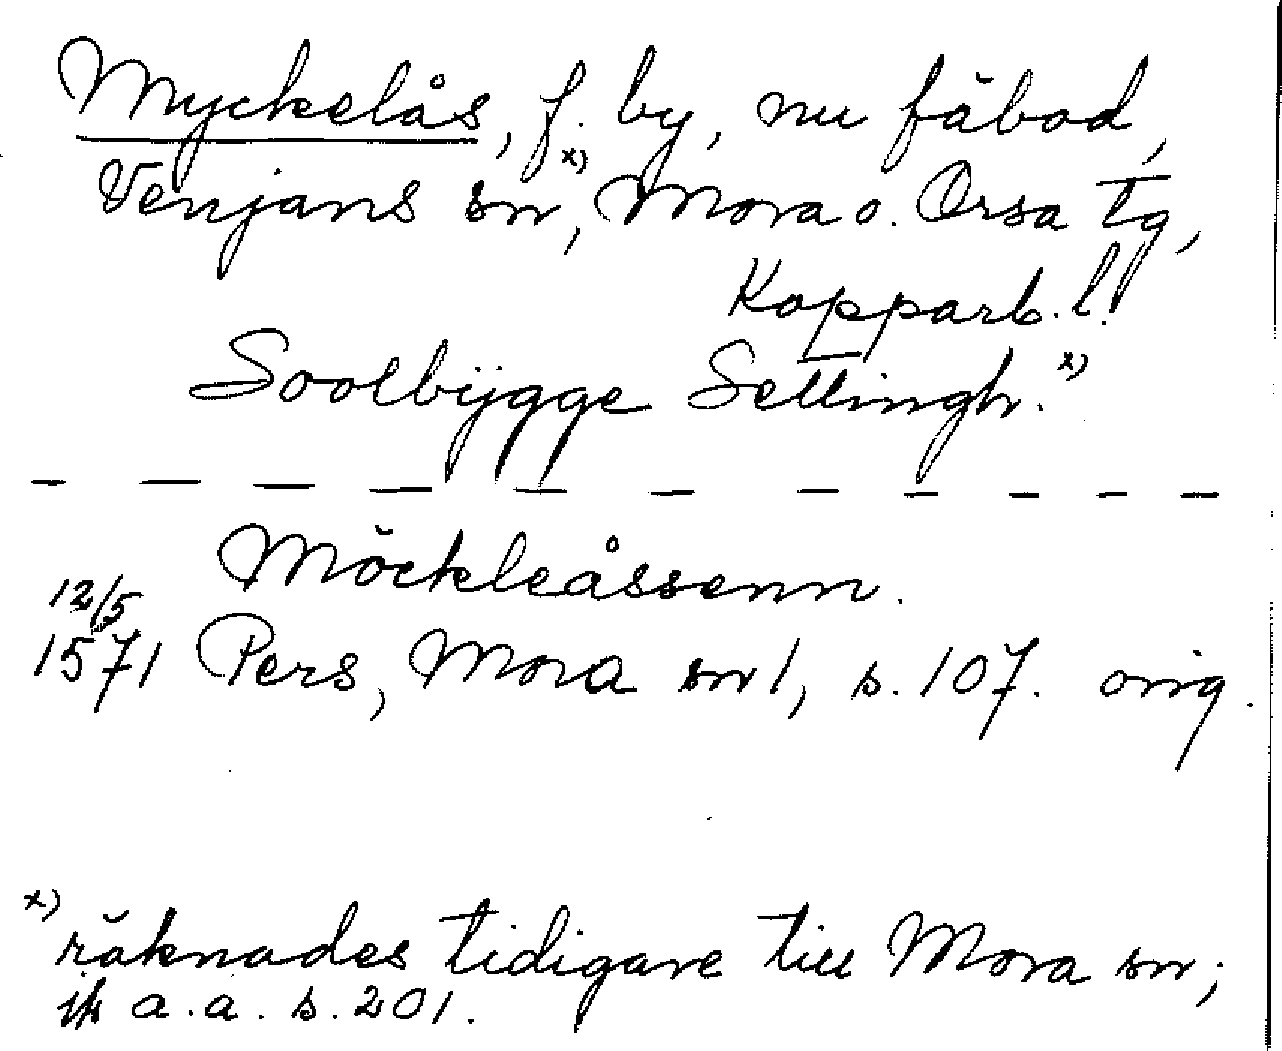 Myckelås, f. by, nu fäbod,
Venjans sn, x) Mora o. Orsa tg,
Kopparb. l.
Soolbÿgge Settingh. x)
Möckleåssenn.
12/5
1571 Pers, Mora sn 1, s. 107. orig.
x)
räknades tidigare till Mora sn;
jfr a.a. s. 201.